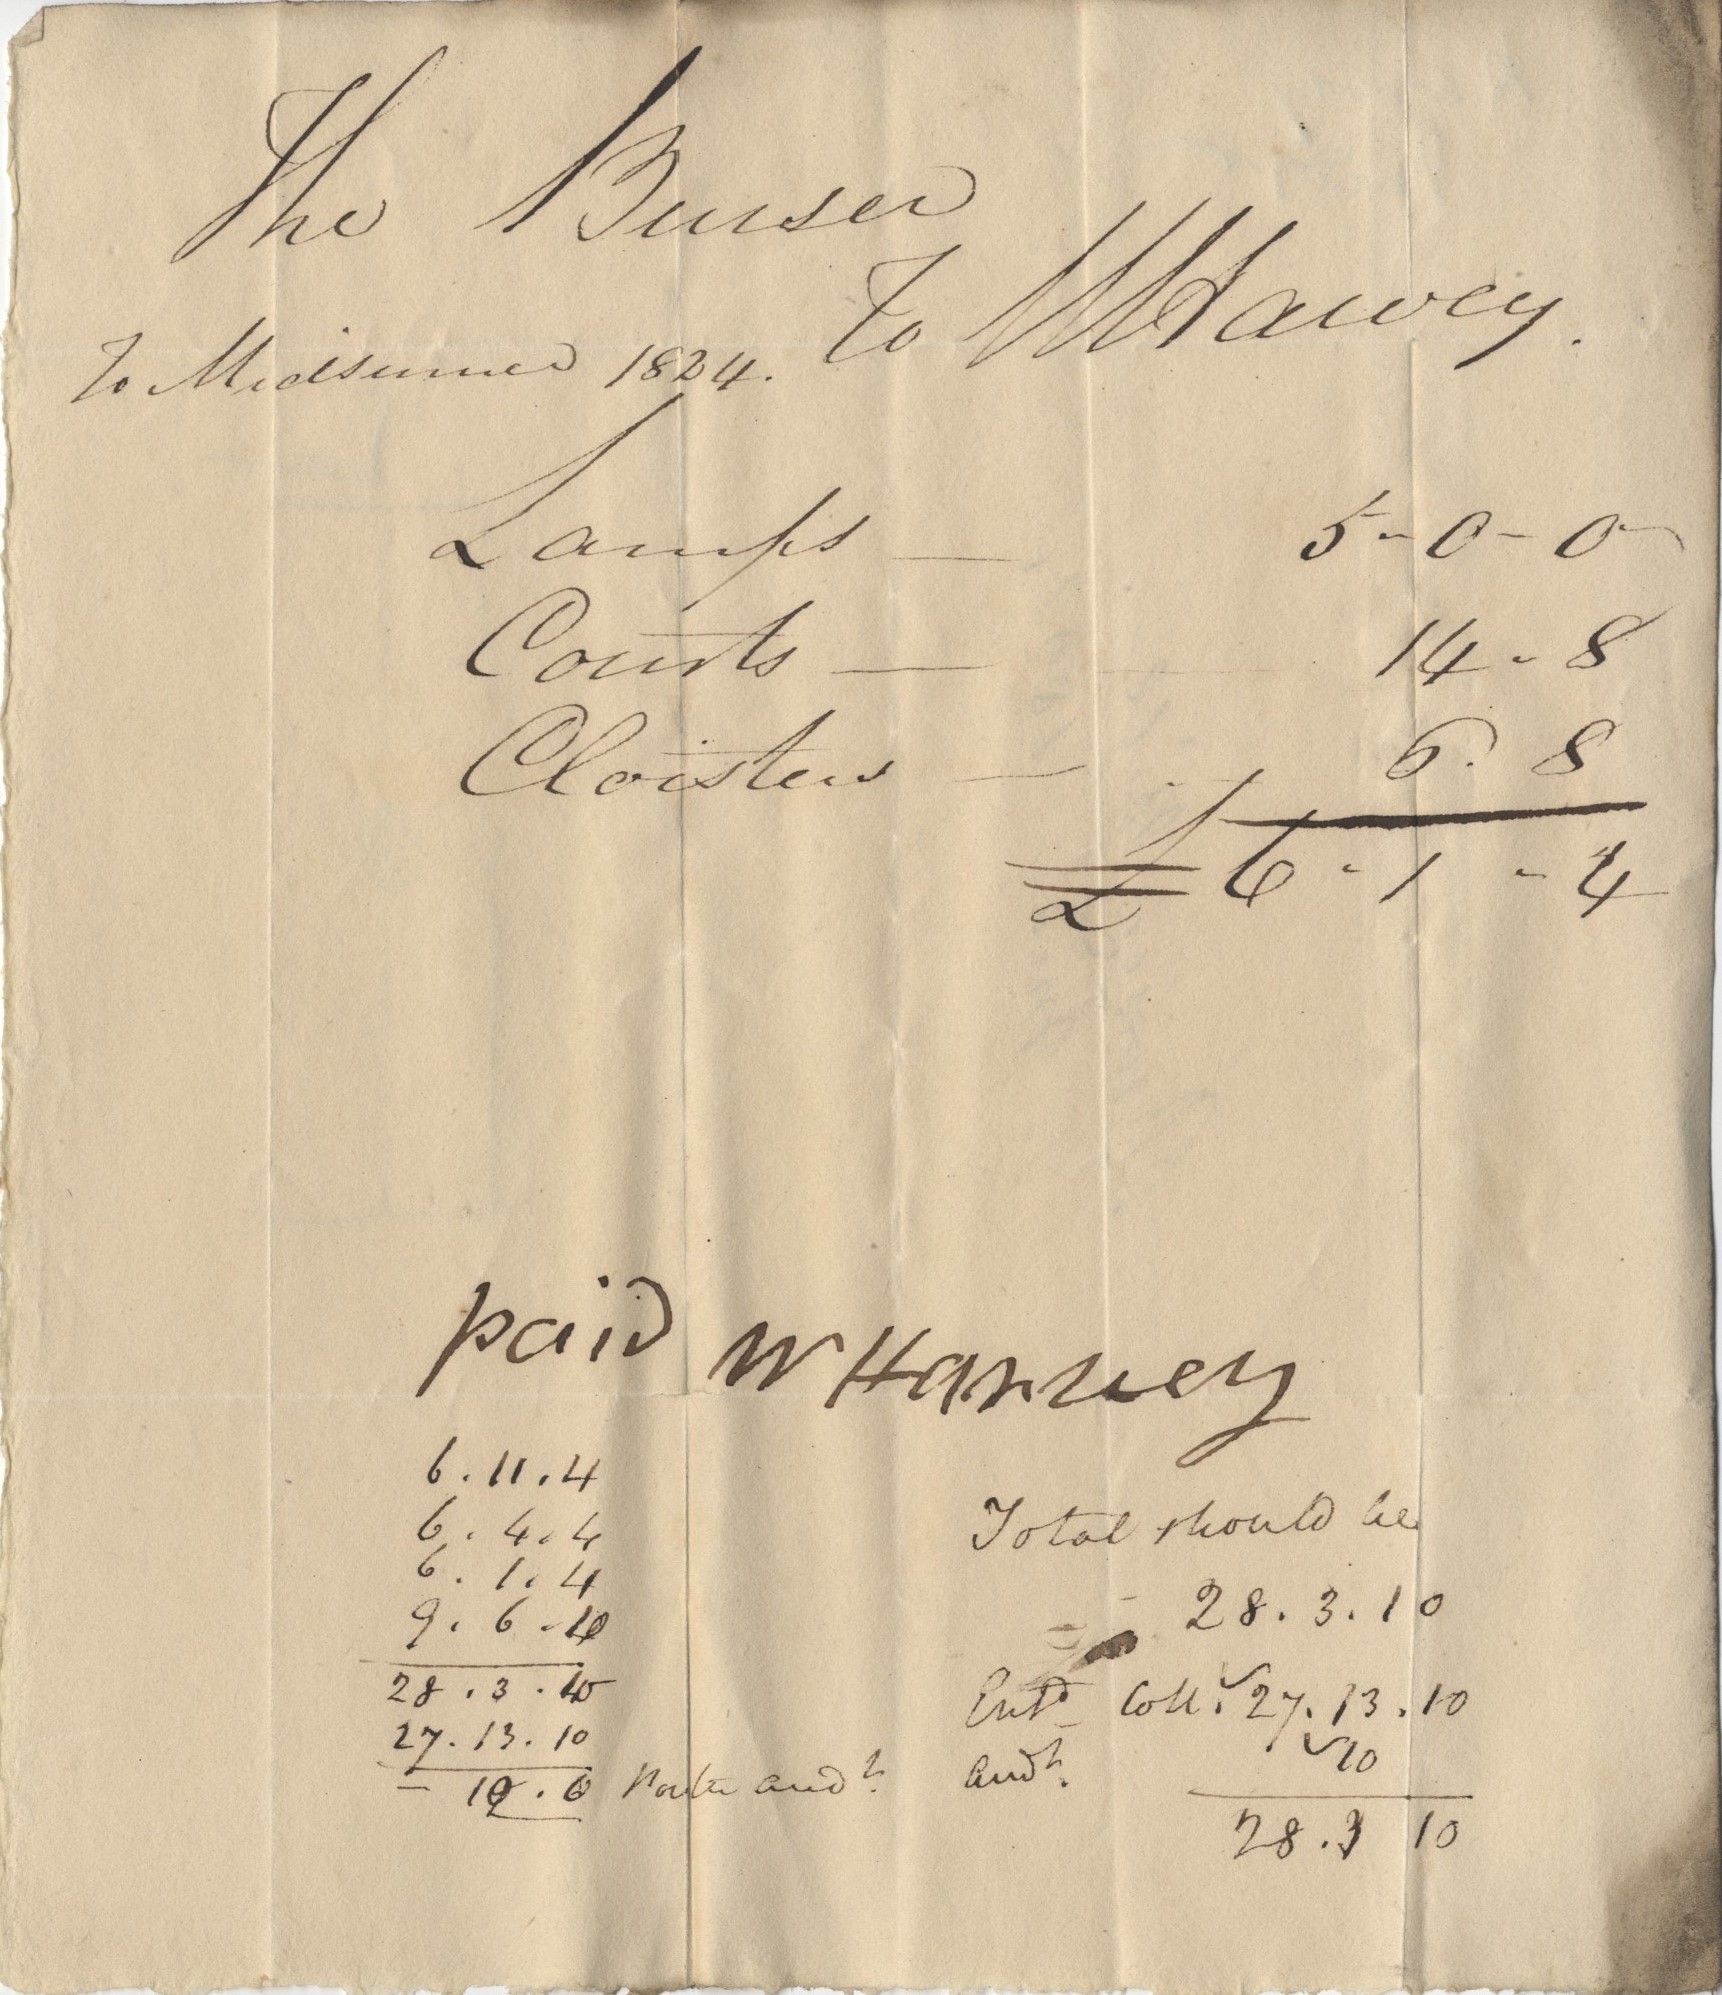 The Burser
To W Harvey.
To Midsumer 1824.
Lamps — 5 - 0 - 0
Courts — 14 - 8
Cloisters — 6 . 8
£ 6 - 1 - 4
paid W Harvey
6 . 11 . 4
6 . 4 . 4
6 . 1 . 4
9 . 6 . 10
28 . 3 . 10
27 . 13 . 10
– 10 . 0
Total should be
28 . 3 . 10
Entd Coll. 27 . 13 . 10
audt. 10
28 . 3 10